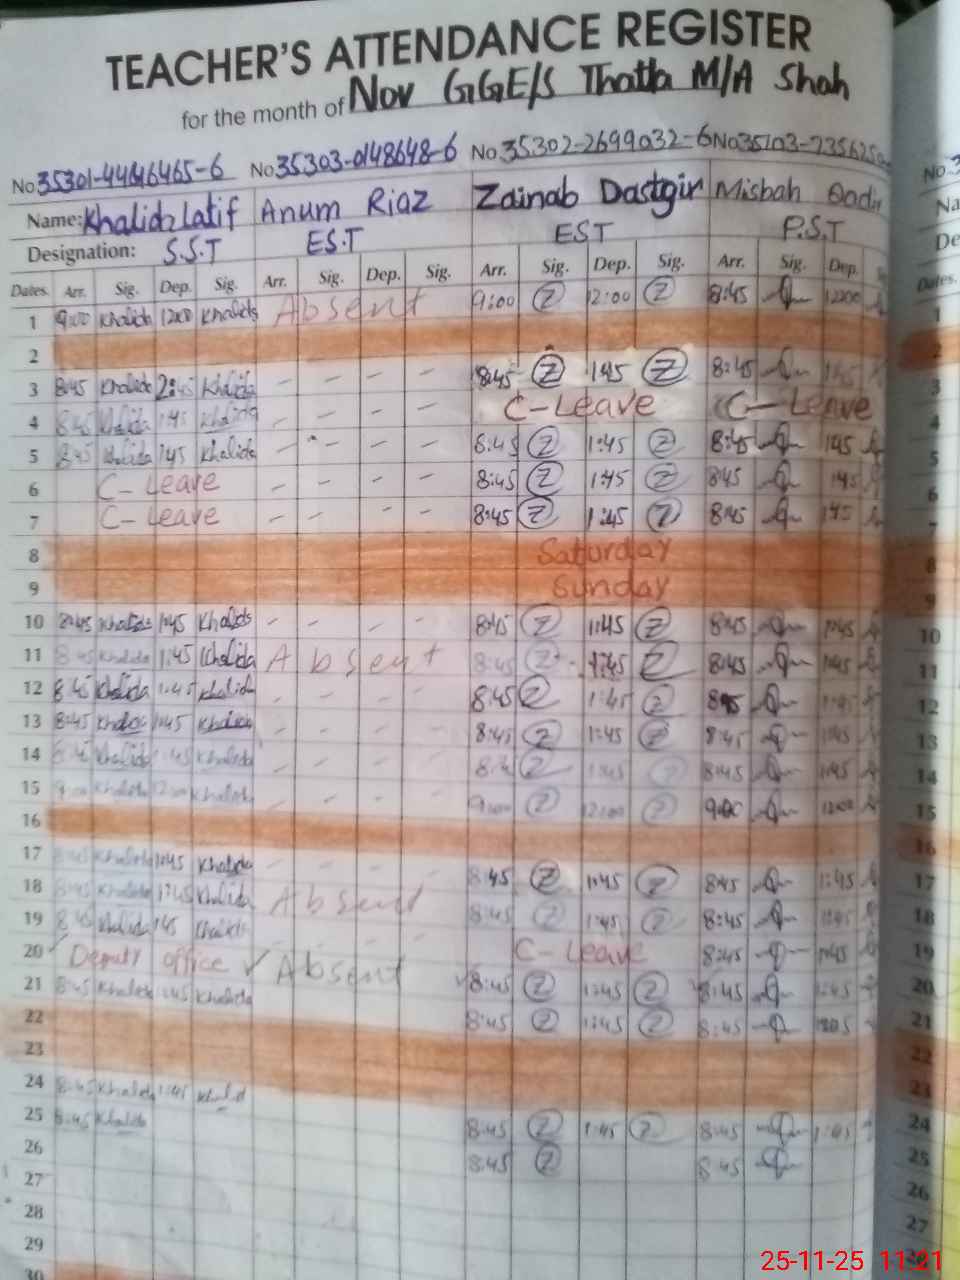 TEACHER'S ATTENDANCE REGISTER
for the month of Nov GGE/S Thatta M/A Shah
No 35301-44646465-6 No 35303-0148648-6 No 35302-2699032-6 No 35103-
Name: Khalida Latif Anum Riaz Zainab Dastgir Misbah Qadir
Designation: S.S.T ES.T EST P.S.T
Dates. Arr. Sig. Dep. Sig. Arr. Sig. Dep. Sig. Arr. Sig. Dep. Sig. Arr. Sig. Dep.
1 9:00 Khalida 1200 Khalida Absent 9:00 Z 12:00 Z 8:45 1200
2
3 8:45 Khalida 2:45 Khalida - - - - 8:45 Z 1:45 Z 8:45 1:45
4 8:45 Khalida 1:45 Khalida - - - - C-Leave C-Leave
5 8:45 Khalida 1:45 Khalida - - - - 8:45 Z 1:45 Z 8:45 1:45
6 C-Leave - - - - 8:45 Z 1:45 Z 8:45 1:45
7 C-Leave - - - - 8:45 Z 1:45 Z 8:45 1:45
8 Saturday
9 Sunday
10 8:45 Khalida 1:45 Khalida - - - - 8:45 Z 1:45 Z 8:45 1:45
11 8:45 Khalida 1:45 Khalida Absent 8:45 Z 1:45 Z 8:45 1:45
12 8:45 Khalida 1:45 Khalida - - - - 8:45 Z 1:45 Z 8:45 1:45
13 8:45 Khalida 1:45 Khalida - - - - 8:45 Z 1:45 Z 8:45 1:45
14 8:45 Khalida 1:45 Khalida - - - - 8:45 Z 1:45 Z 8:45 1:45
15 9:00 Khalida 12:00 Khalida - - - - 9:00 Z 12:00 Z 9:00 1200
16
17 8:45 Khalida 1:45 Khalida - - - - 8:45 Z 1:45 Z 8:45 1:45
18 8:45 Khalida 1:45 Khalida Absent 8:45 Z 1:45 Z 8:45 1:45
19 8:45 Khalida 1:45 Khalida - - - - C-Leave 8:45 1:45
20 Deputy office Absent 8:45 Z 1:45 Z 8:45 1:45
21 8:45 Khalida 1:45 Khalida 8:45 Z 1:45 Z 8:45
22
23
24 8:45 Khalida 1:45 Khalid 8:45 Z 1:45 Z 8:45 1:45
25 8:45 Khalida 8:45 Z 8:45
26
27
28
29
30
25-11-25 11:21